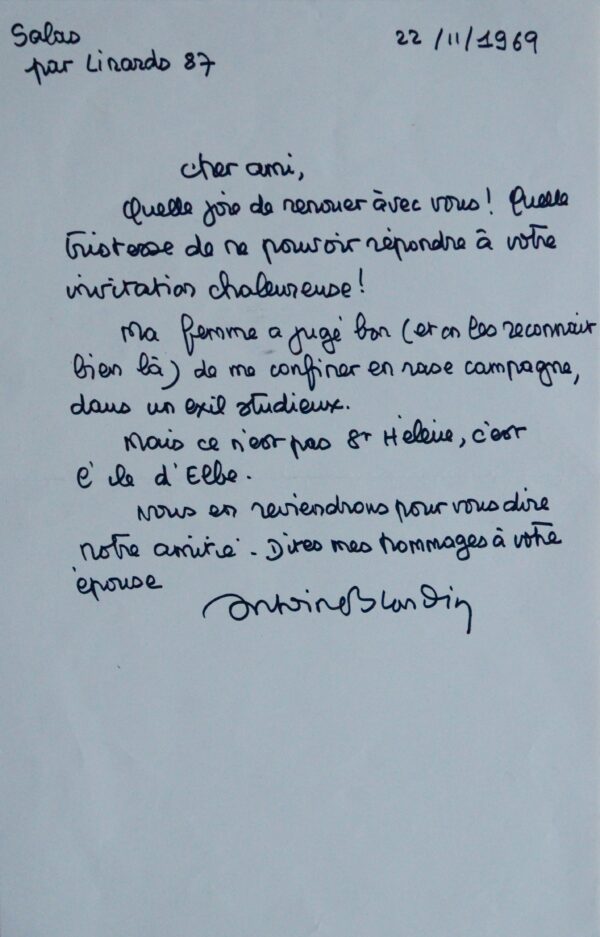 Salas
par Linards 87
22/11/1969
cher ami,
Quelle joie de renouer avec vous! Quelle
tristesse de ne pouvoir répondre à votre
invitation chaleureuse!
Ma femme a jugé bon (et on les reconnait
bien là) de me confiner en rase campagne,
dans un exil studieux.
Mais ce n'est pas St Hélène, c'est
l'ile d'Elbe.
Nous en reviendrons pour vous dire
notre amitié. Dites mes hommages à votre
épouse
Antoine Blondin